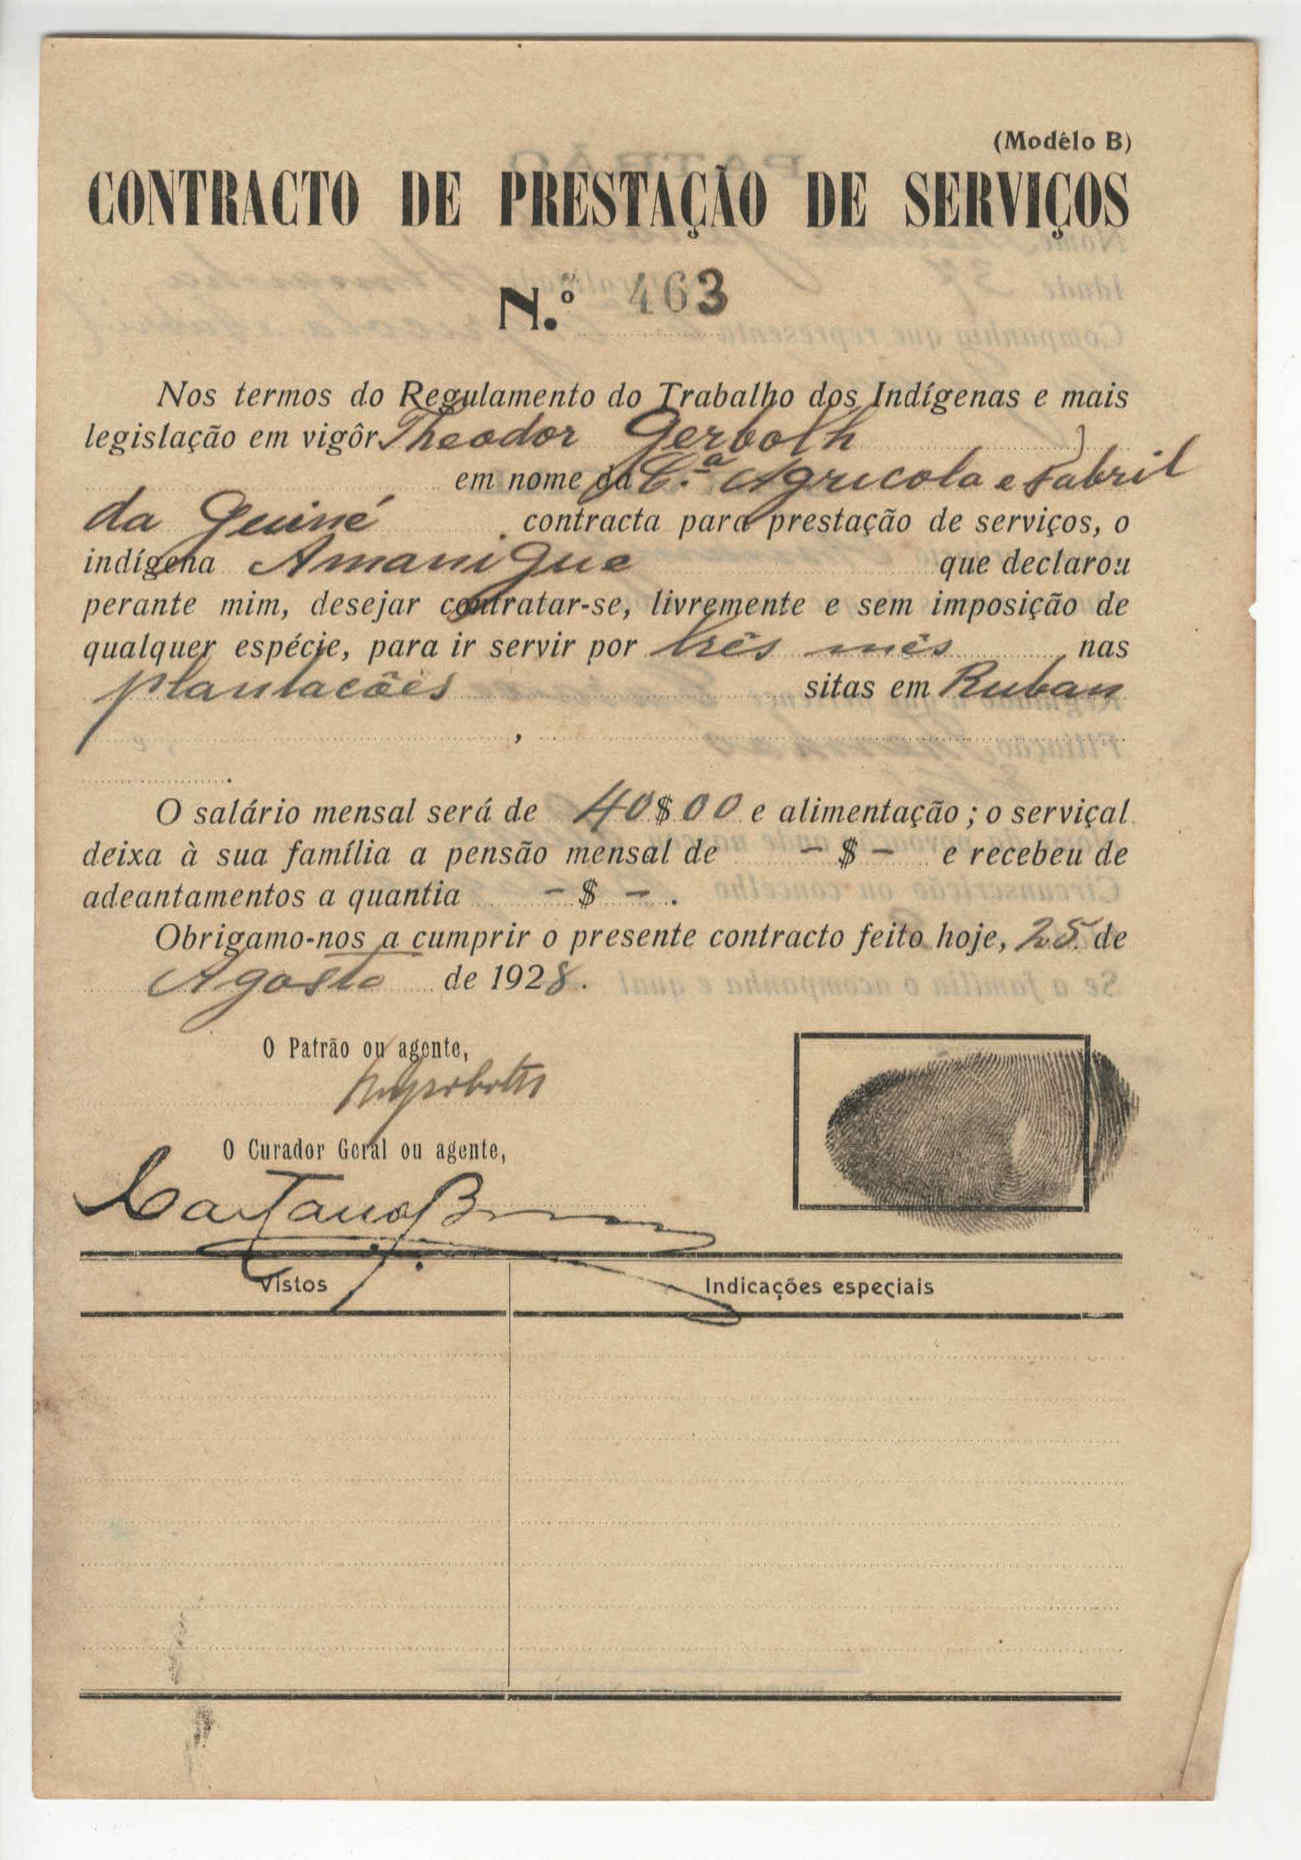 (Modêlo B)
CONTRACTO DE PRESTAÇÃO DE SERVIÇOS
N.º 463
Nos termos do Regulamento do Trabalho dos Indígenas e mais
legislação em vigôr Theodor Gerbolh
em nome da C.ª Agricola e Fabril
da Guiné contracta para prestação de serviços, o
indígena Amanigue que declarou
perante mim, desejar contratar-se, livremente e sem imposição de
qualquer espécie, para ir servir por três mês nas
plantacôes sitas em Ruban
O salário mensal será de 40$00 e alimentação; o serviçal
deixa à sua família a pensão mensal de -$- e recebeu de
adeantamentos a quantia -$-.
Obrigamo-nos a cumprir o presente contracto feito hoje, 25 de
Agosto de 1928.
O Patrão ou agente,
O Curador Geral ou agente,
Caetano
Vistos
Indicações especiais